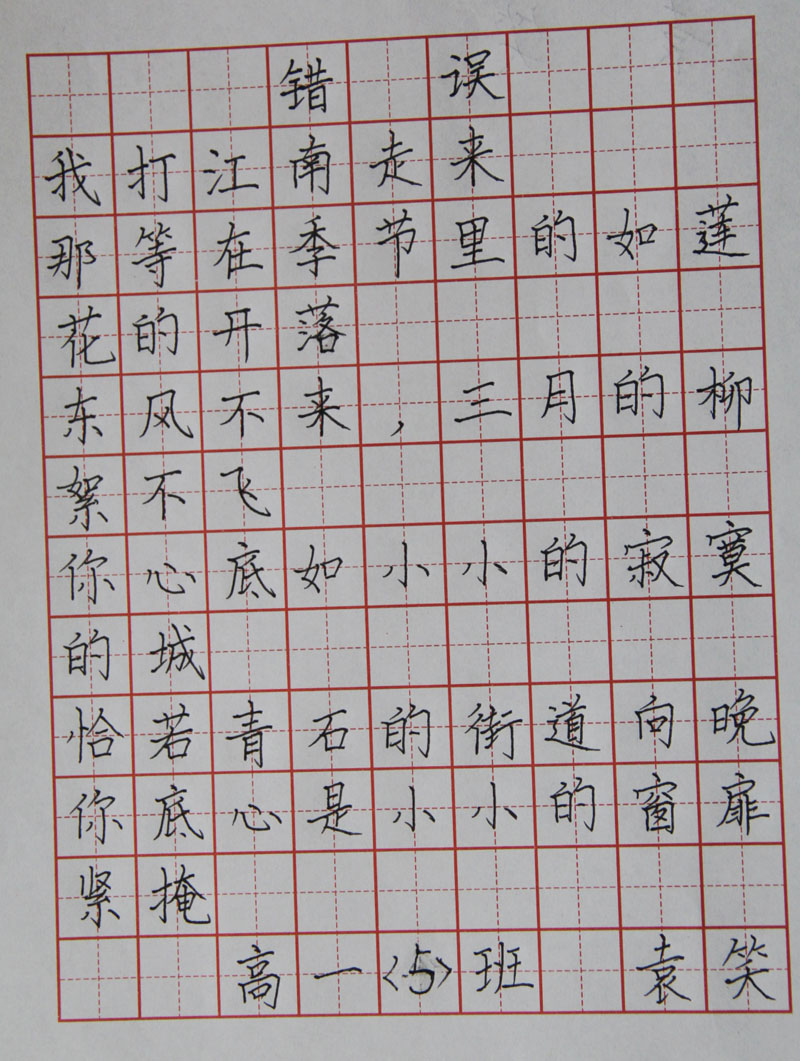 错误
我打江南走来
那等在季节里的如莲
花的开落
东风不来,三月的柳
絮不飞
你心底如小小的寂寞
的城
恰若青石的街道向晚
你底心是小小的窗扉
紧掩
高一<5>班 袁笑